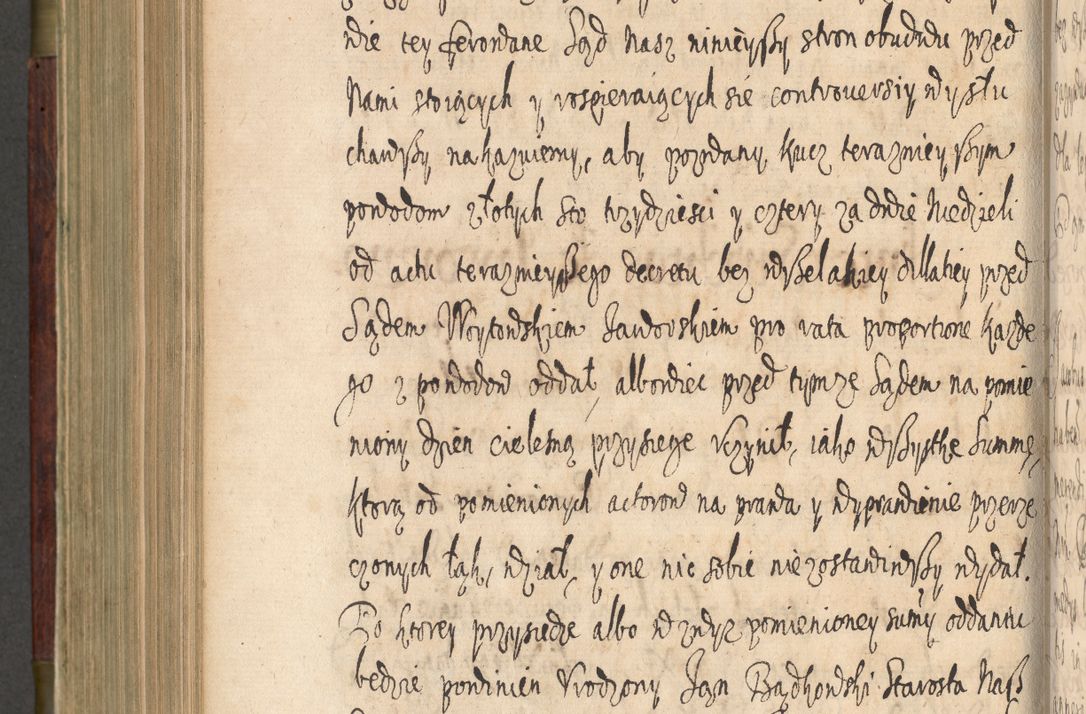 wie tey ferowane Sąd Nasz ninieyszy stron obudwu przed
Nami stoiących y rospieraiących sie controuersiy wysłu
chawszy nakazuiemy, aby pozwany Kucz teraznieyszym
powodom złotych sto trzydziesci y cztery za dwie Niedzieli
od actu teraznieyszego decretu bez wszelakiey dillatiey przed
Sądem Woytowskiem Jaworskiem pro rata proportione każde
go z powodow oddał, albowiec przed tymze Sądem na pomie
niony dzien cielesną przysiege vczynił, iako wszystkę Summę,
ktorą od pomienionych actorow na prawa y wyprawienie przerze
czonych łąk, wział, y one nic sobie niezostawiwszy wydał.
Po ktorey przysiedze albo wzwysz pomienioney sumy oddaniu
bedzie powinien Vrodzony Jan Bądkowski Starosta Nasz